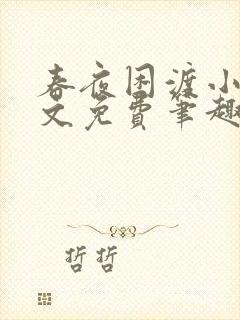 春夜困渡小
文免费笔趣
哲哲